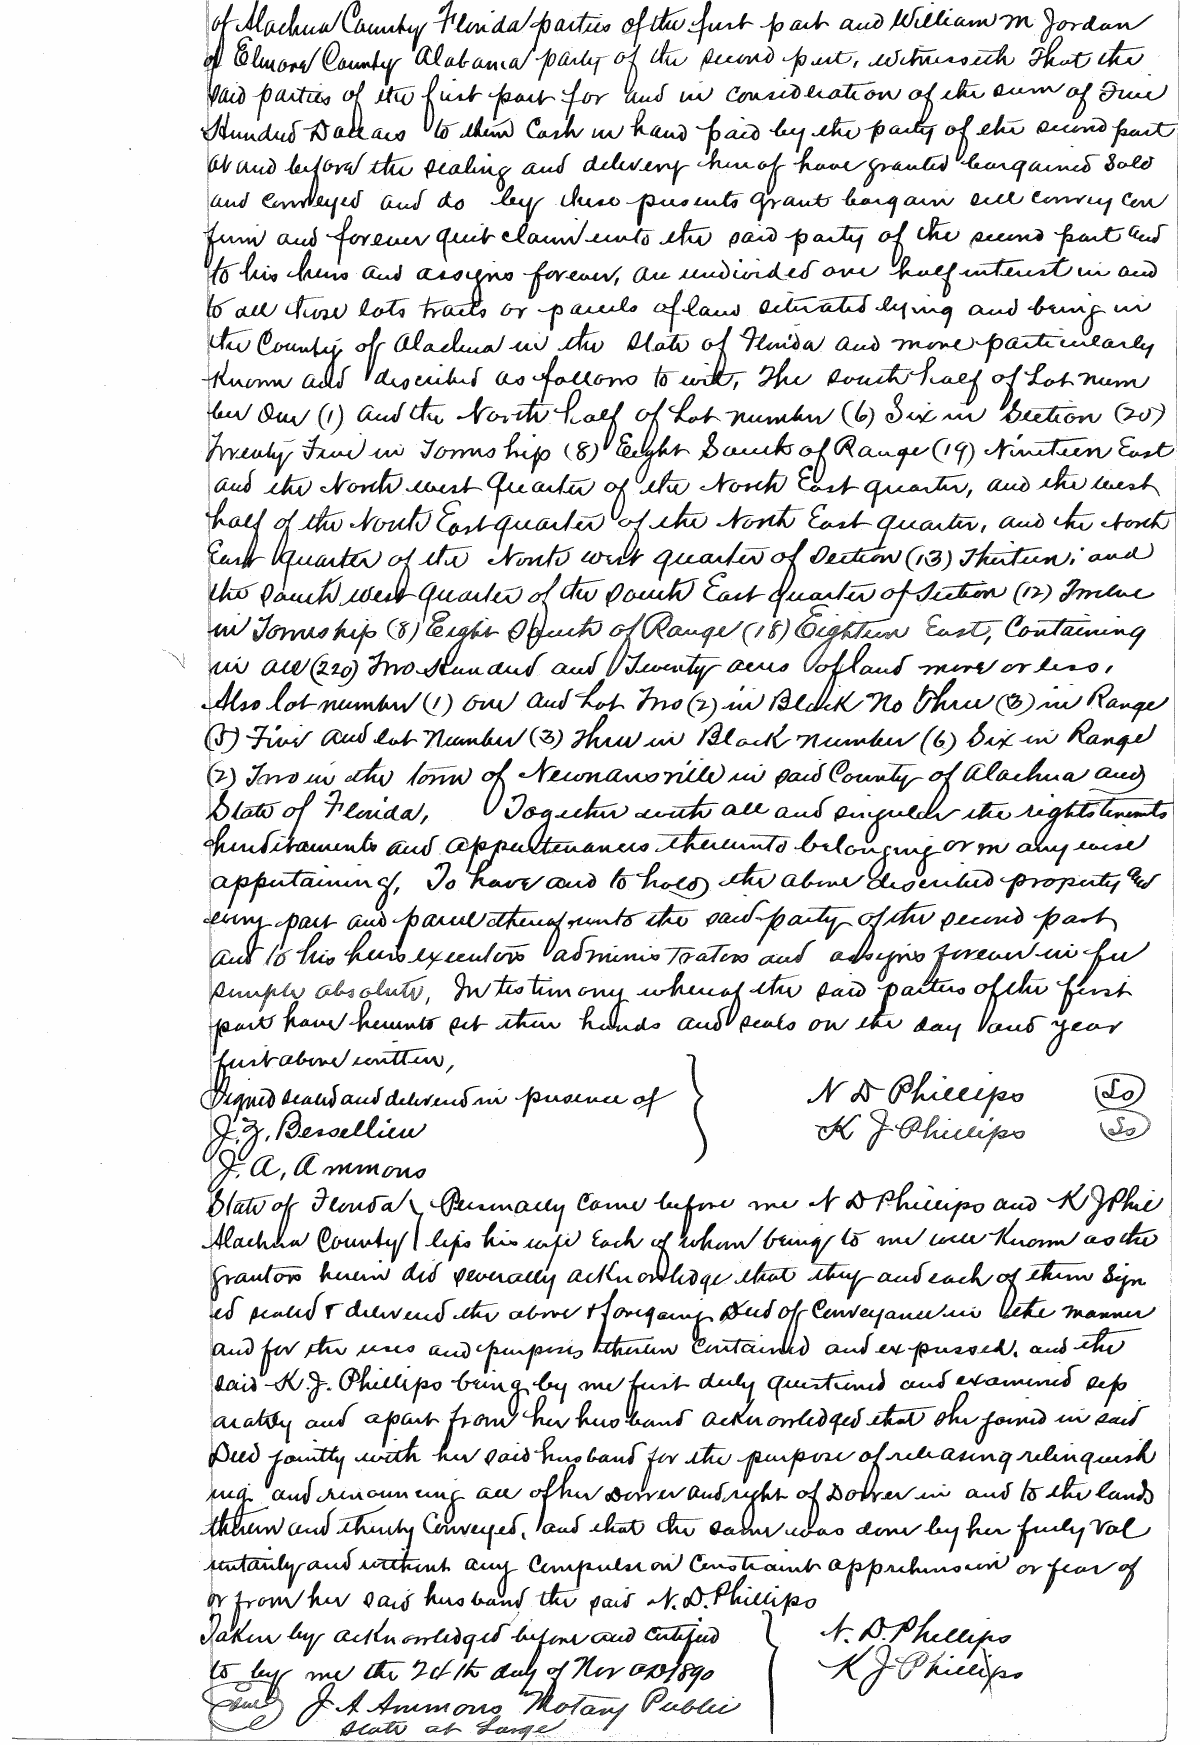 of Alachua County Florida parties of the first part and William M Jordan
of Elmore County Alabama party of the second part, witnesseth That the
said parties of the first part for and in consideration of the sum of Five
Hundred Dollars to them Cash in hand paid by the party of the second part
at and before the sealing and delivery hereof have granted bargained Sold
and conveyed and do by these presents grant bargain sell convey con
firm and forever quit claim unto the said party of the second part and
to his heirs and assigns forever, an undivided one half interest in and
to all those lots tracts or parcels of land situated lying and being in
the County of Alachua in the State of Florida and more particularly
Known and described as follows to wit, The South half of Lot num
ber One (1) and the North half of Lot number (6) Six in Section (25)
Twenty Five in Township (8) Eight South of Range (19) Nineteen East
and the North west Quarter of the North East quarter, and the west
half of the North East quarter of the North East quarter, and the North
East quarter of the North west quarter of Section (13) Thirteen; and
the South west Quarter of the South East quarter of Section (12) Twelve
in Township (8) Eight South of Range (18) Eighteen East, Containing
in all (220) Two Hundred and Twenty acres of land more or less.
Also lot number (1) one and Lot Two (2) in Block No Three (3) in Range
(5) Five and lot Number (3) Three in Block number (6) Six in Range
(2) Two in the town of Newnansville in said County of Alachua and
State of Florida, Together with all and singular the rights tenements
hereditaments and appurtenances thereunto belonging or in any wise
appertaining, To have and to hold the above described property and
every part and parcel thereof unto the said party of the second part
and to his heirs executors administrators and assigns forever in fee
simple absolute, In testimony whereof the said parties of the first
part have hereunto set their hands and seals on the day and year
first above written,
Signed sealed and delivered in presence of N D Phillips (Ls)
J. Z. Bessellieu K J Phillips (Ls)
J. A. Ammons
State of Florida Personally came before me N D Phillips and K J Phil
Alachua County lips his wife Each of whom being to me well Known as the
grantors herein did severally acknowledge that they and each of them Sign
ed sealed & delivered the above & foregoing Deed of Conveyance in the manner
and for the uses and purposes therein contained and expressed. and the
said K. J. Phillips being by me first duly questioned and examined sep
arately and apart from her husband acknowledged that she joined in said
Deed jointly with her said husband for the purpose of releasing relinquish
ing and renouncing all of her Dower and right of Dower in and to the lands
therein and thereby Conveyed, and that the same was done by her freely Vol
untarily and without any Compulsion Constraint apprehension or fear of
or from her said husband the said N. D. Phillips
Taken by acknowledged before and certified N. D. Phillips
to by me the 24th day of Nov AD 1890 K J Phillips
Seal J A Ammons Notary Public
State at Large